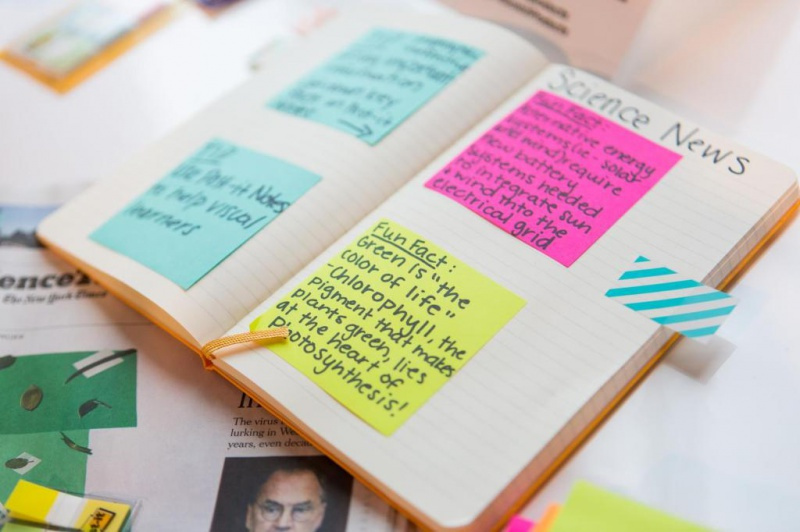 use Post-it Notes
to help visual
learners
Science News
Fun Fact:
alternative energy
systems (ie - solar
and wind) require
new battery
systems needed
to integrate sun
+ wind into the
electrical grid
Fun Fact:
Green is "the
color of life"
-Chlorophyll, the
pigment that makes
plants green, lies
at the heart of
photosynthesis!
The New York Times
The virus
lurking in We
years, even deca